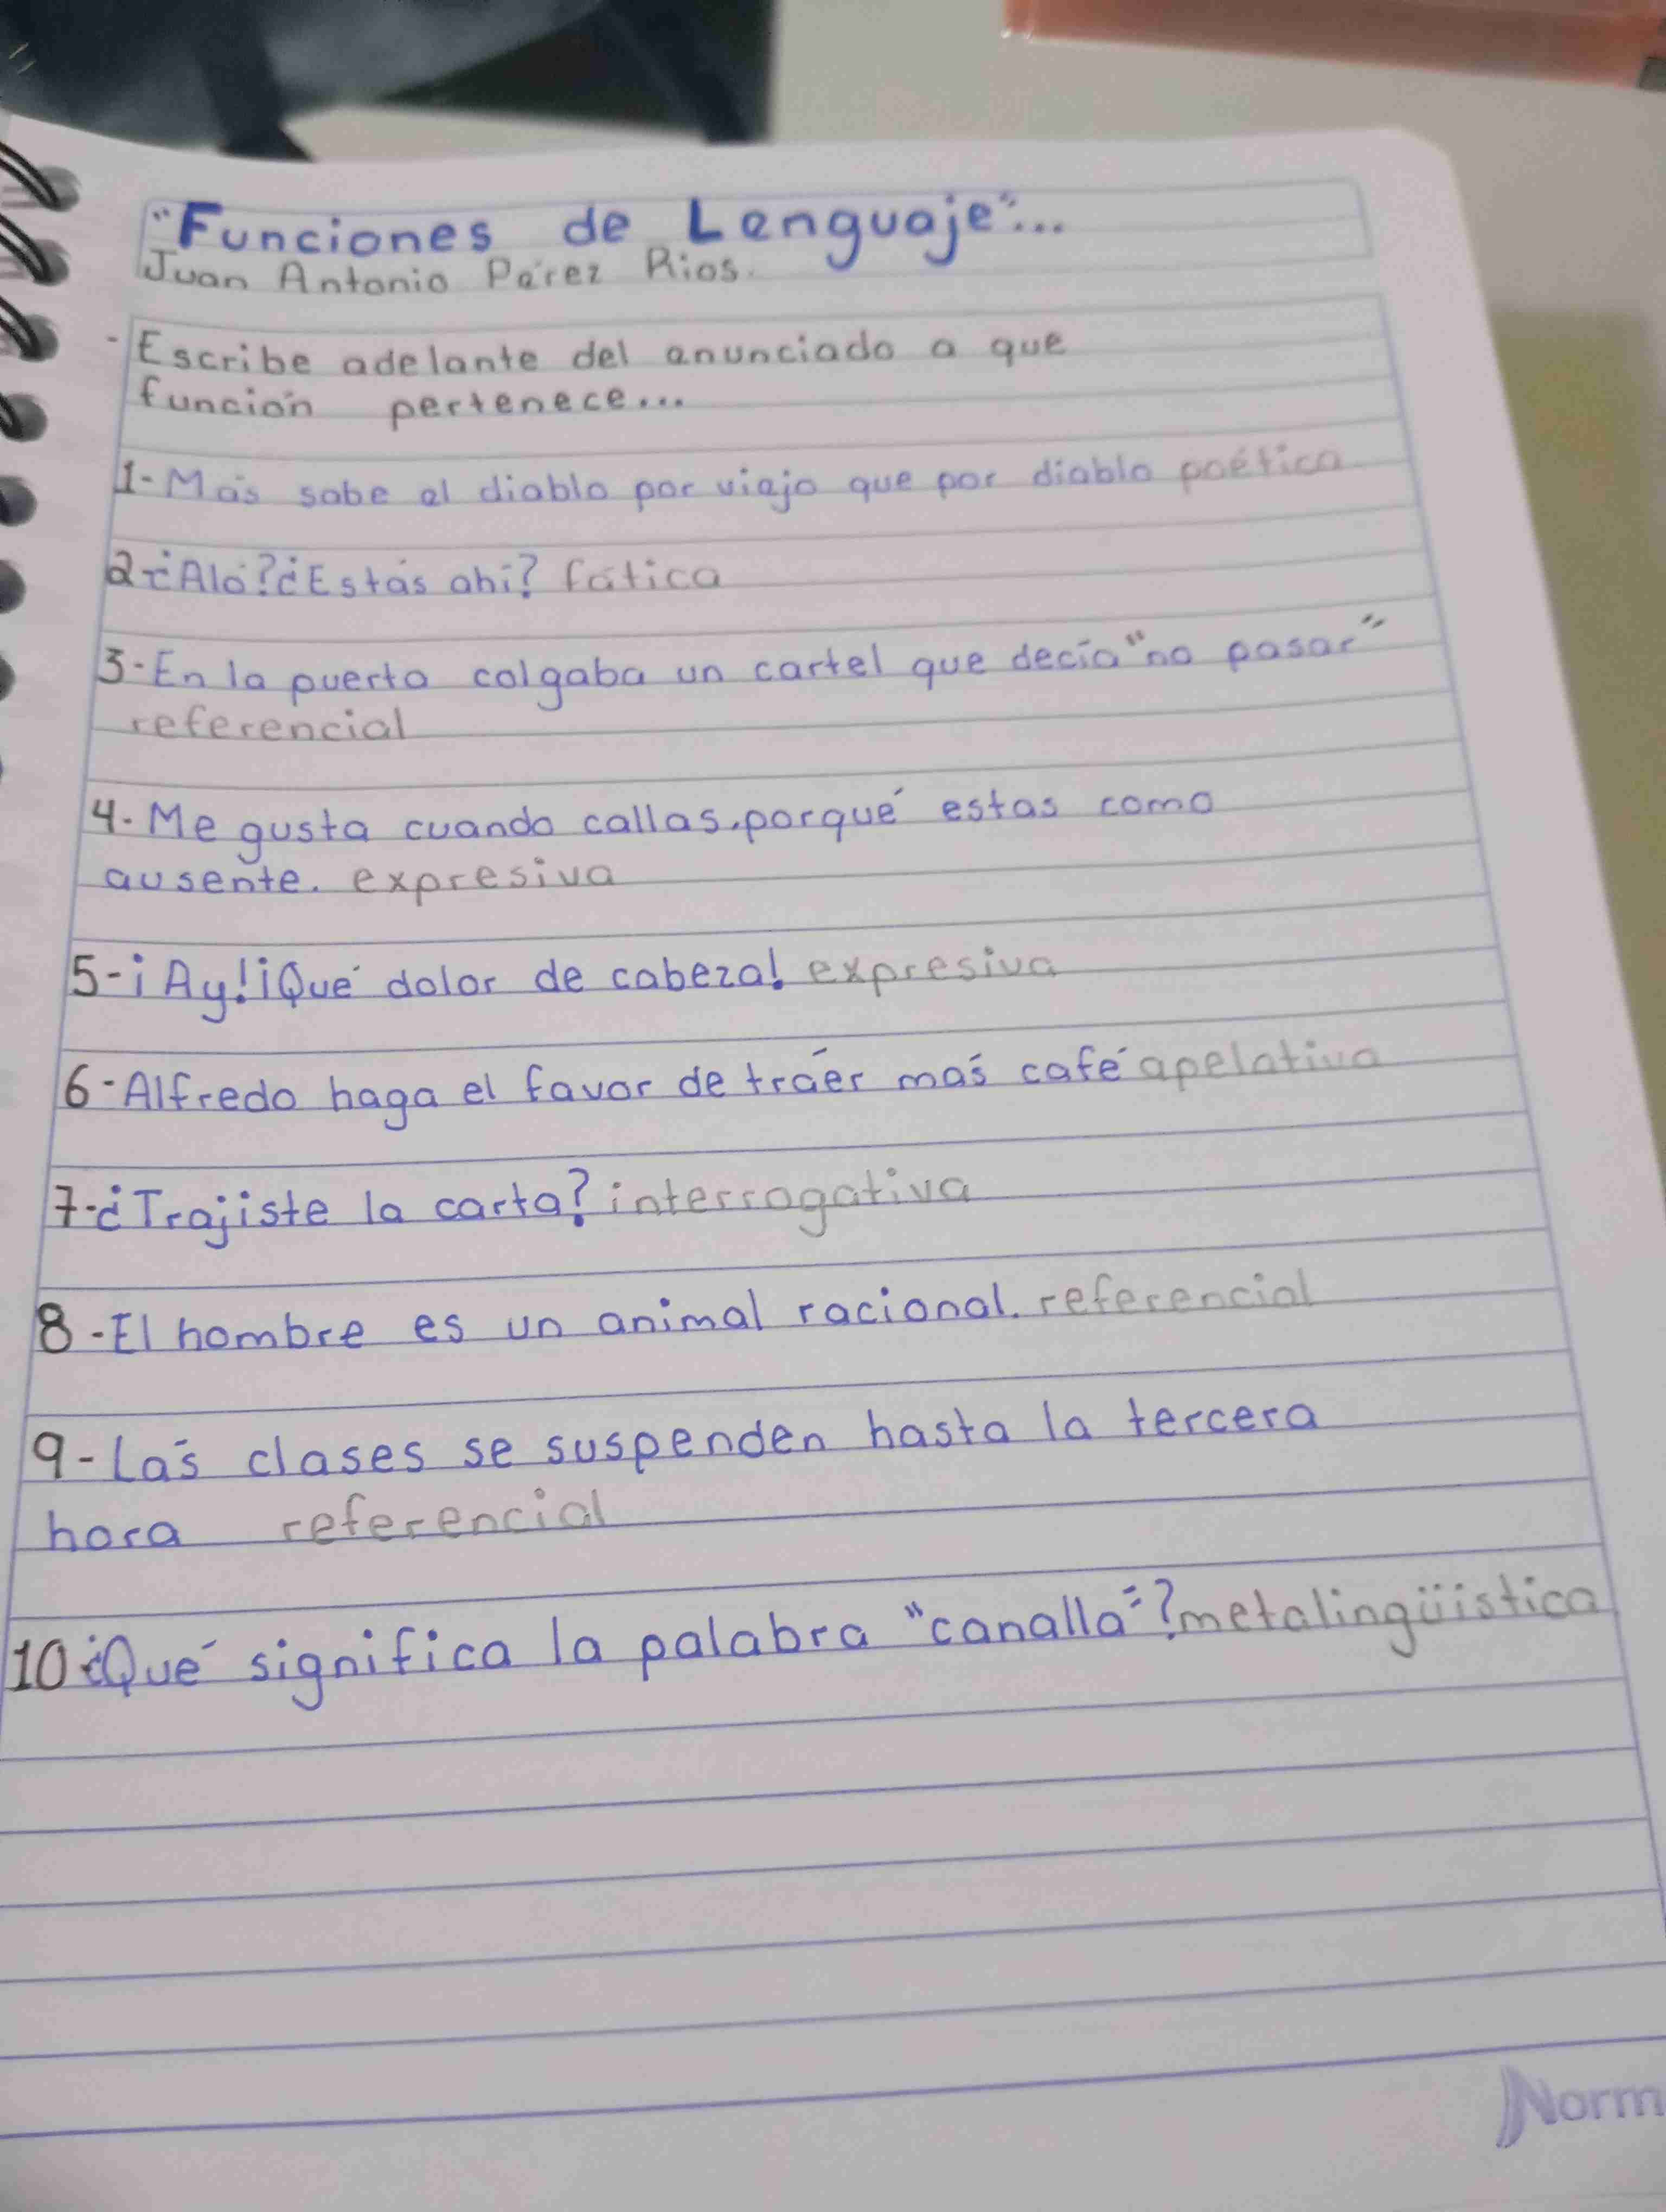 "Funciones de Lenguaje"...
Juan Antonio Pérez Rios.
-Escribe adelante del enunciado a que
función pertenece...
1-Más sabe el diablo por viejo que por diablo poética
2-¿Aló?¿Estás ahí? fática
3-En la puerta colgaba un cartel que decía "no pasar"
referencial
4-Me gusta cuando callas,porqué estas como
ausente. expresiva
5-¡Ay!¡Qué dolor de cabeza! expresiva
6-Alfredo haga el favor de tráer más café apelativa
7-¿Trajiste la carta? interrogativa
8-El hombre es un animal racional. referencial
9-Lás clases se suspenden hasta la tercera
hora referencial
10¿Qué significa la palabra "canalla"? metalingüística
Norm